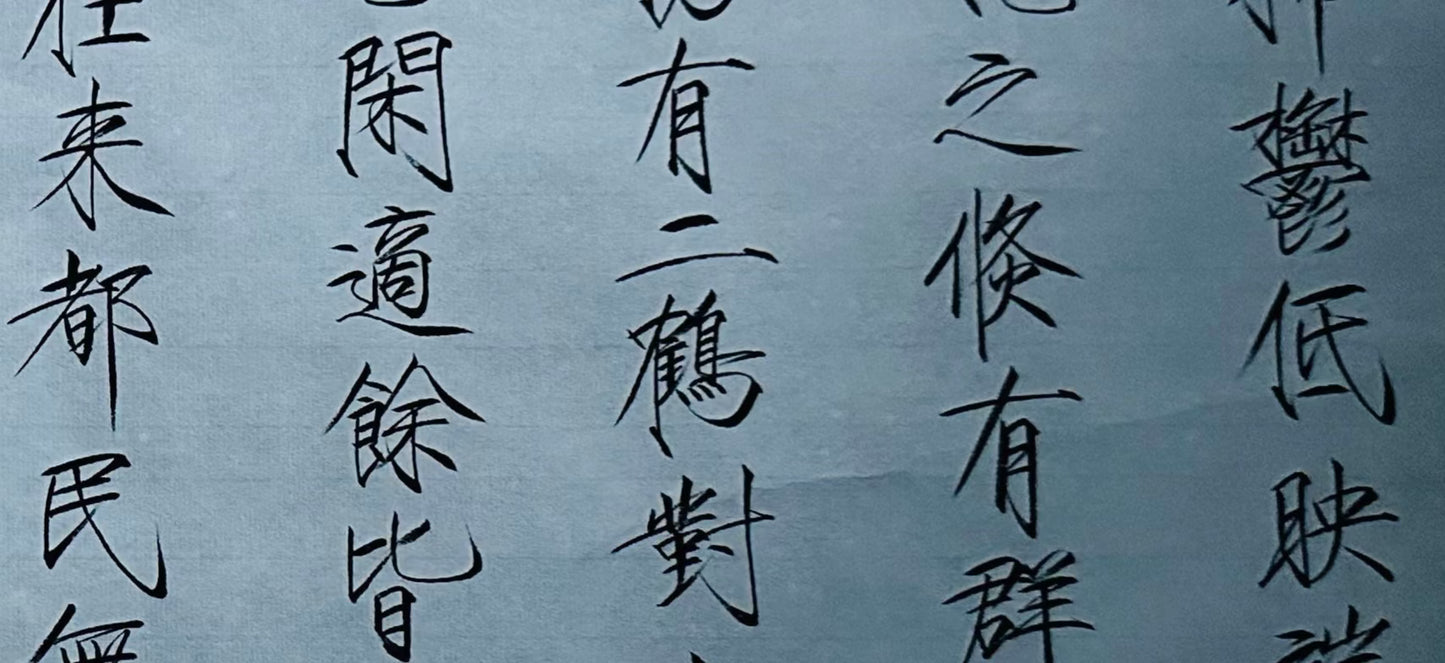 鬱低映
之倏有群
有二鶴對
閑適餘皆
往来都民無